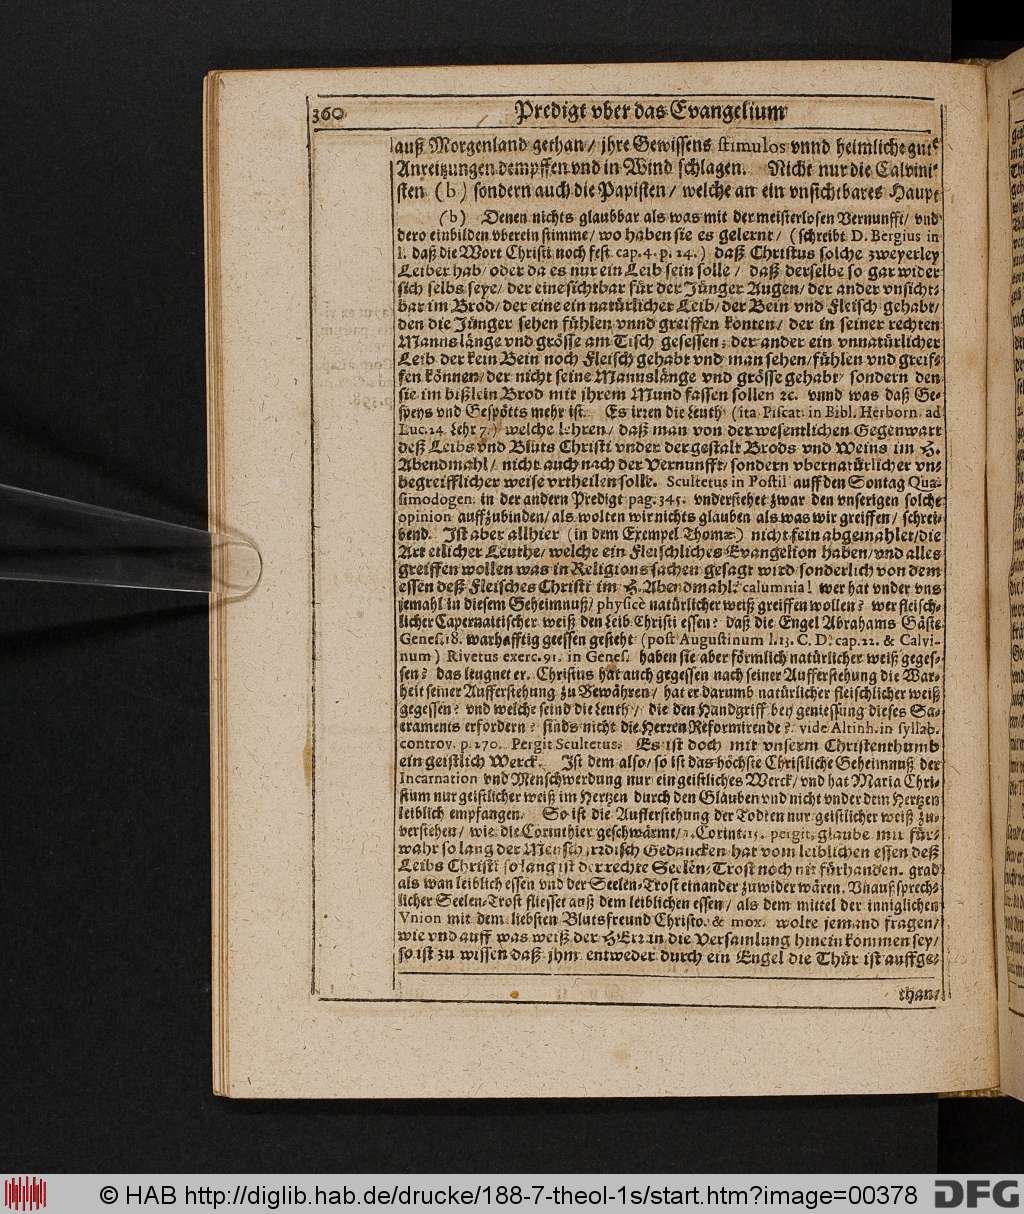 360 Predigt vber das Evangelium
auß Morgenland gethan / jhre Gewissens stimulos vnnd heimliche gute
Anreitzungen dempffen vnd in Wind schlagen. Nicht nur die Calvini-
sten (b) sondern auch die Papisten / welche an ein vnsichtbares Haupt
(b) Denen nichts glaubbar als was mit der meisterlosen Vernunfft / vnd
dero einbilden vberein stimme / wo haben sie es gelernt / (schreibt D. Bergius in
l. daß die Wort Christi noch fest cap. 4. p. 14.) daß Christus solche zweyerley
Leiber hab / oder da es nur ein Leib sein solle / daß derselbe so gar wider
sich selbs seye / der eine sichtbar für der Jünger Augen / der ander vnsicht-
bar im Brod / der eine ein natürlicher Leib / der Bein vnd Fleisch gehabt /
den die Jünger sehen fühlen vnnd greiffen konten / der in seiner rechten
Mannslänge vnd grösse am Tisch gesessen; der ander ein vnnatürlicher
Leib der kein Bein noch Fleisch gehabt vnd man sehen / fühlen vnd greif-
fen können / der nicht seine Mannslänge vnd grösse gehabt / sondern den
sie im bißlein Brod mit jhrem Mund fassen sollen ꝛc. vnnd was daß Ge-
speys vnd Gespötts mehr ist. Es irren die Leuth (ita Piscat. in Bibl. Herborn. ad
Luc. 24. Lehr 7.) welche lehren / daß man von der wesentlichen Gegenwart
deß Leibs vnd Bluts Christi vnder der gestalt Brods vnd Weins im H.
Abendmahl / nicht auch nach der Vernunfft / sondern vbernatürlicher vn-
begreifflicher weise vrtheilen solle. Scultetus in Postil auff den Sontag Qua-
simodogen. in der andern Predigt pag. 345. vnderstehet zwar den vnserigen solche
opinion auffzubinden / als wolten wir nichts glauben als was wir greiffen / schrei-
bend. Ist aber allhier (in dem Exempel Thomæ) nicht fein abgemahlet / die
Art etlicher Leuthe / welche ein Fleischliches Evangelion haben / vnd alles
greiffen wollen was in Religions sachen gesagt wird / sonderlich von dem
essen deß Fleisches Christi im H. Abendmahl. calumnia! wer hat vnder vns
jemahl in diesem Geheimnuß / physicè natürlicher weiß greiffen wollen? wer fleisch-
licher Capernaitischer weiß den Leib Christi essen? daß die Engel Abrahams Gäste
Genes. 18. warhafftig geessen gesteht (post Augustinum l. 13. C. D. cap. 22. & Calvi-
num) Rivetus exerc. 91. in Genes. haben sie aber förmlich natürlicher weiß geges-
sen? das leugnet er. Christus hat auch gegessen nach seiner Aufferstehung die War-
heit seiner Aufferstehung zu Bewähren / hat er darumb natürlicher fleischlicher weiß
gegessen? vnd welche seind die Leuth / die den Handgriff bey geniessung dieses Sa-
craments erfordern? sinds nicht die Herren Reformirende? vide Altinh. in syllab.
controv. p. 270. Pergit Scultetus. Es ist doch mit vnserm Christenthumb
ein geistlich Werck. Ist dem also / so ist das höchste Christliche Geheimnuß der
Incarnation vnd Menschwerdung nur ein geistliches Werck / vnd hat Maria Chri-
stum nur geistlicher weiß im Hertzen durch den Glauben vnd nicht vnder dem Hertzen
leiblich empfangen. So ist die Aufferstehung der Todten nur geistlicher weiß zu-
verstehen / wie die Corinthier geschwärmt / 1. Corint. 15. pergit, glaube mir für-
wahr so lang der Mensch irrdisch Gedancken hat vom leiblichen essen deß
Leibs Christi so lang ist der rechte Seelen-Trost noch nit fürhanden. grad
als wan leiblich essen vnd der Seelen-Trost einander zuwider wären. Vnaußsprech-
licher Seelen-Trost fliesset auß dem leiblichen essen / als dem mittel der inniglichen
Vnion mit dem liebsten Blutsfreund Christo. & mox. wolte jemand fragen /
wie vnd auff was weiß der HErr in die Versamlung hinein kommen sey /
so ist zu wissen daß jhm entweder durch ein Engel die Thür ist auffge-
than /
© HAB http://diglib.hab.de/drucke/188-7-theol-1s/start.htm?image=00378 DFG